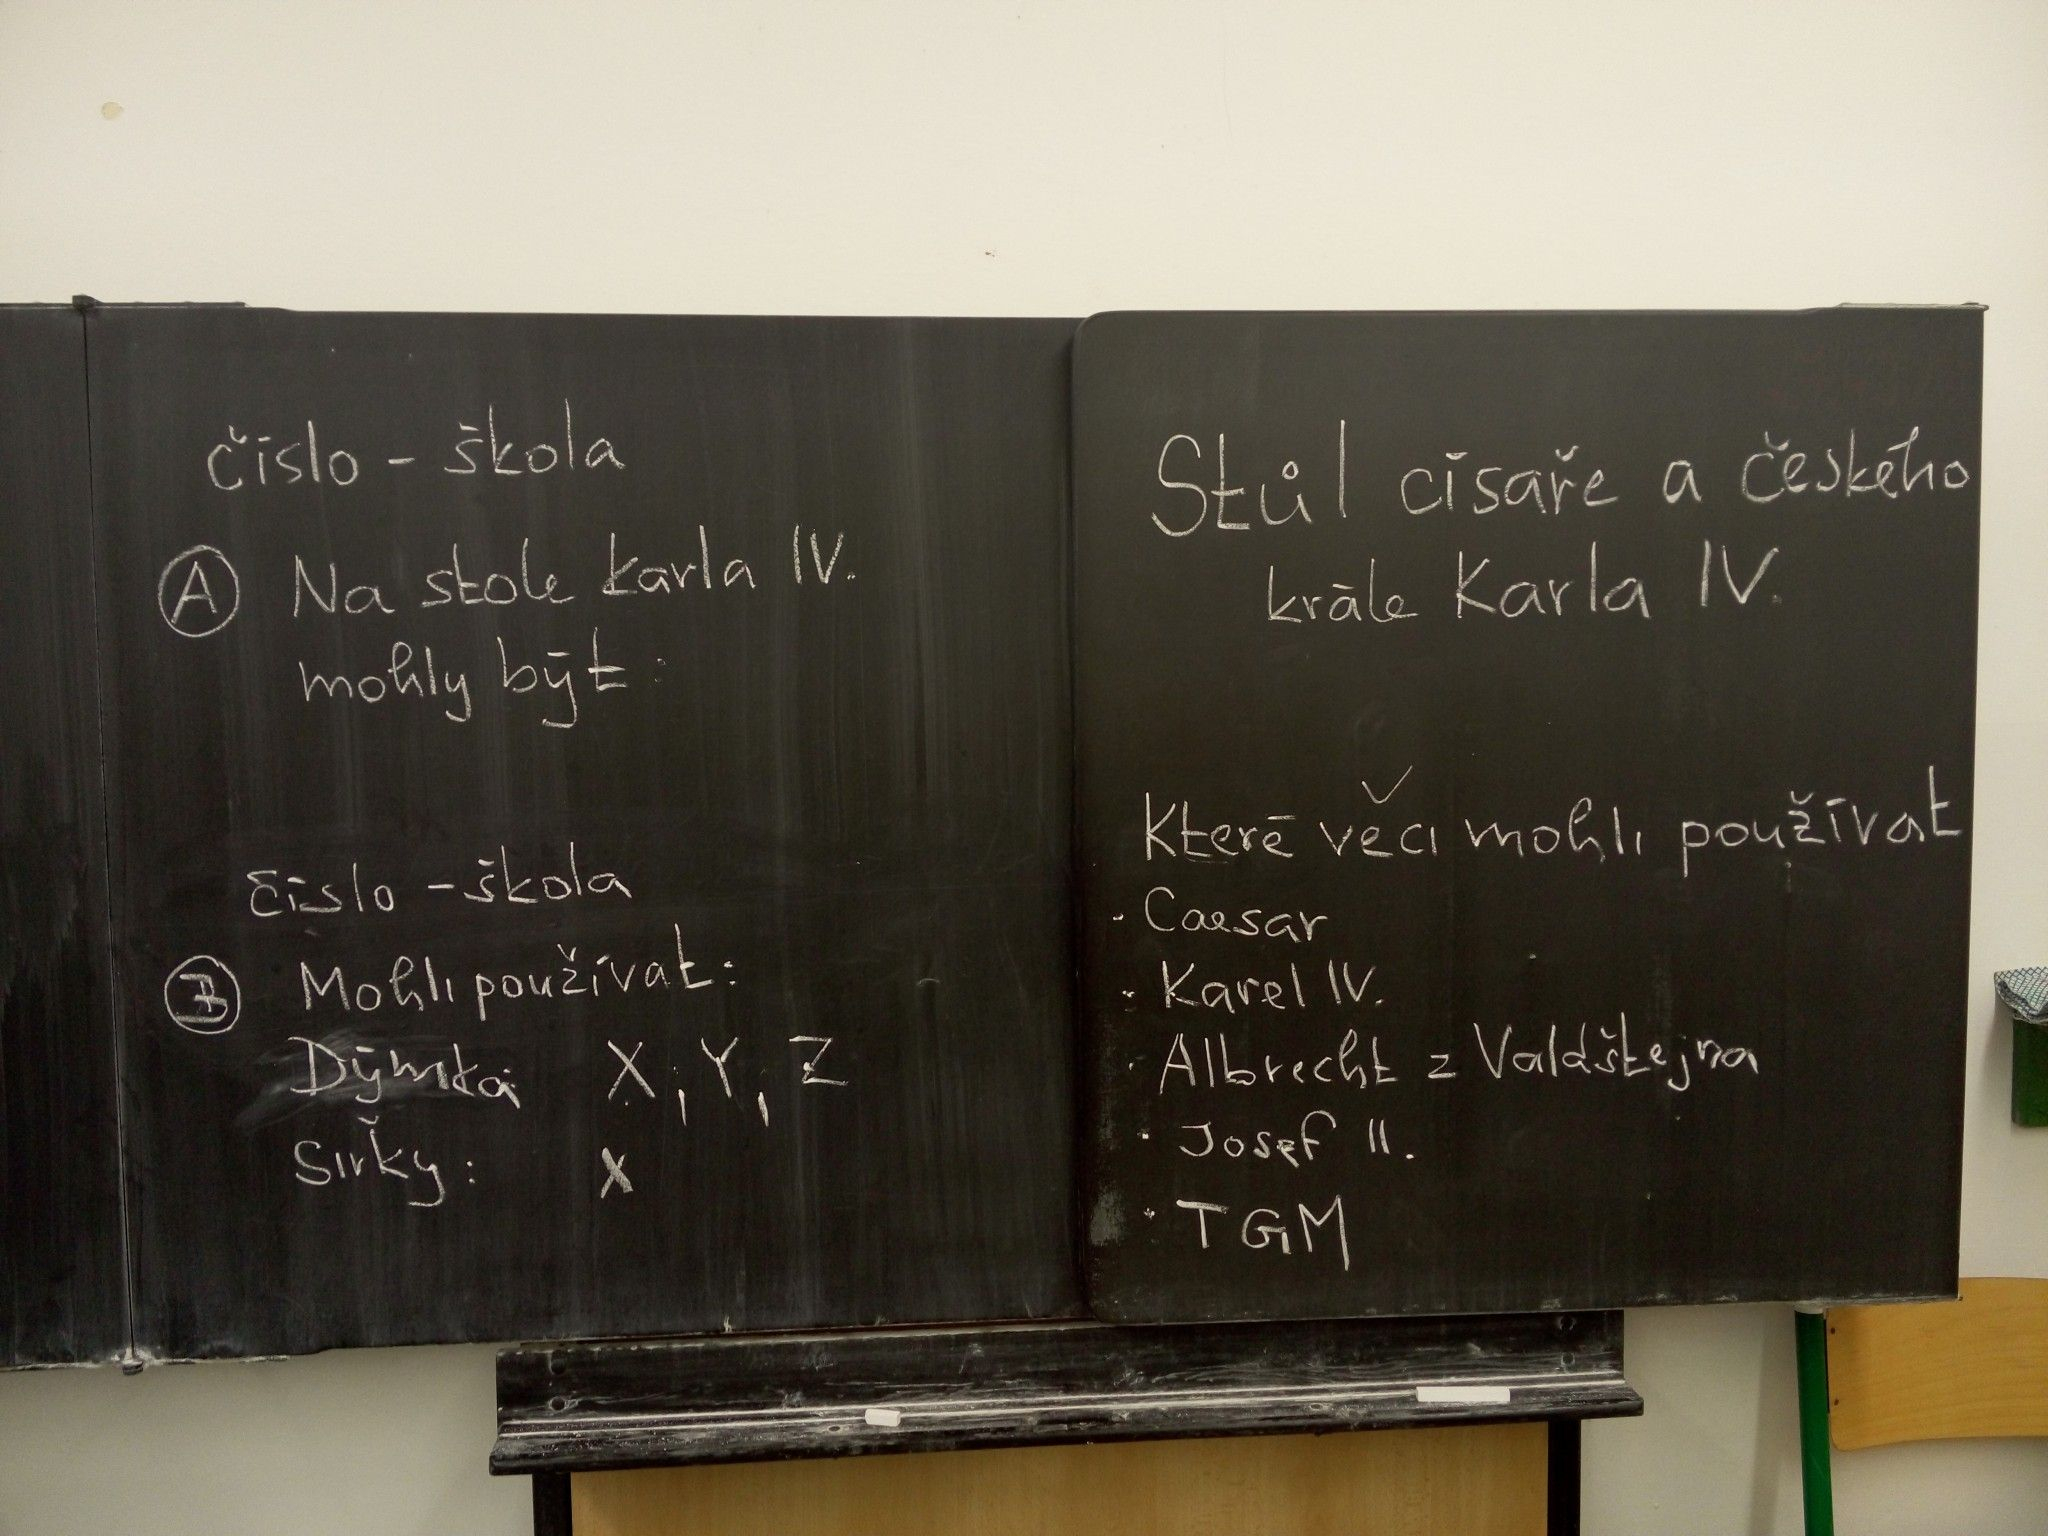 číslo - škola
A Na stole Karla IV.
mohly být:
číslo - škola
B Mohli používat:
Dýmka X, Y, Z
Sirky: X
Stůl císaře a českého
krále Karla IV.
Které věci mohli používat
· Caesar
· Karel IV.
· Albrecht z Valdštejna
· Josef II.
· TGM